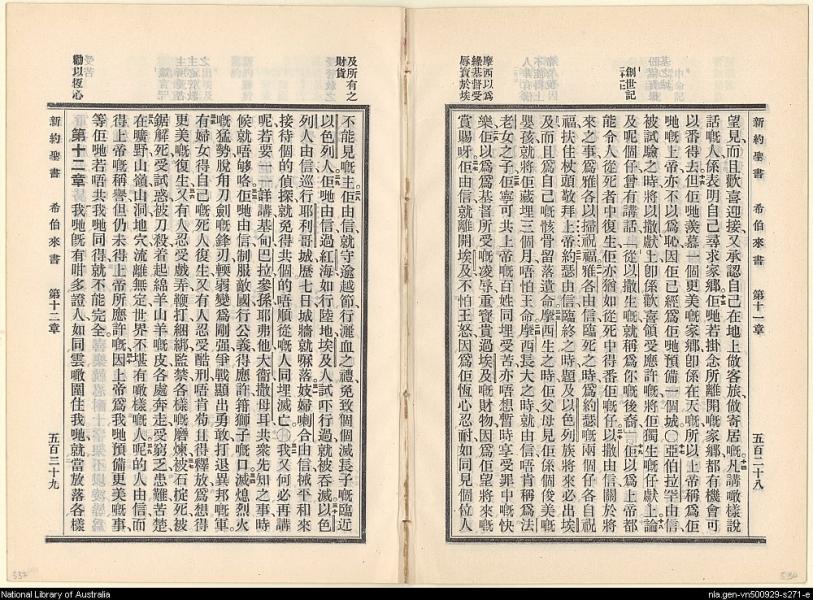 創世記
摩西以爲
緣基督受
辱寶於埃
新約聖書 希伯來書 第十一章 五百二十八
望見而且歡喜迎接又承認自己在地上做客旅做寄居嘅凡講噉樣說
話嘅人係表明自己尋求家鄉佢哋若掛念所離開嘅家鄉都有機會可
以番得去但佢哋羨慕一個更美嘅家鄉卽係在天嘅所以上帝稱爲佢
哋嘅上帝亦不以爲恥因佢已經爲佢哋預備一個城○亞伯拉罕由信
被試驗之時將以撒獻上卽係歡喜領受應許嘅將佢獨生嘅仔獻上論
及呢個仔曾有講話從以撒生嘅就稱爲你嘅後裔佢以爲上帝都
能令人從死者中復生佢亦猶如從死中得番佢嘅仔以撒由信關於將
來之事爲雅各以掃祝福雅各由信臨死之時爲約瑟嘅兩個仔各自祝
福扶住杖頭敬拜上帝約瑟由信臨終之時題及以色列族將來必出埃
及而且爲自己嘅骸骨留落遺命摩西生之時佢父母見佢係個俊美嘅
嬰孩就將佢藏埋三個月唔怕王命摩西長大之時就由信唔肯稱爲法
老女之子佢寧可共上帝嘅百姓同埋受苦亦唔想暫時享受罪中嘅快
樂佢以爲爲基督所受嘅凌辱重寶貴過埃及嘅財物因爲佢望將來嘅
賞賜呀佢由信就離開埃及不怕王怒因爲佢恆心忍耐如同見個位人
及所有之
財貨
勸以恆心
受苦
新約聖書 希伯來書 第十二章 五百二十九
不能見嘅主佢由信就守逾越節行灑血之禮免致個個滅長子嘅臨近
以色列人佢哋由信過紅海如行陸地埃及人試吓行過就被吞滅以色
列人由信巡行耶利哥城歷七日城牆就冧落妓婦喇合由信搣平和來
接待個的偵探就免得共個的唔順從嘅人同埋滅亡○我又何必再講
呢若要一一詳講基甸巴拉參孫耶弗他大衞撒母耳共衆先知之事時
候就唔够咯佢哋由信制服敵國行公義得應許箝獅子嘅口滅熄烈火
嘅猛勢脫角刀劍嘅鋒刃輭弱變爲剛強爭戰顯出勇敢打退異邦嘅軍
有婦女得自己嘅死人復生又有人忍受酷刑唔肯苟且得釋放爲想得
更美嘅復生又有人忍受戲弄鞭打捆綁監禁各樣嘅磨煉被石掟死被
鋸解死受試惑被刀殺着起綿羊山羊嘅皮各處奔走受窮乏患難苦楚
在曠野山嶺山洞地穴流離無定世界不堪有噉樣嘅人呢的人由信而
得上帝嘅稱譽但仍未得上帝所應許嘅因上帝爲我哋預備更美嘅事
等佢哋若唔共我哋同得就不能完全
第十二章 我哋旣有咁多證人如同雲噉圍住我哋就當放落各樣
National Library of Australia
nla.gen-vn500929-s271-e